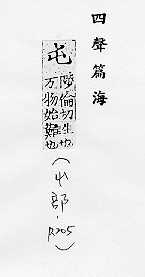 四聲篇海
屯
陟倫切生也
万物始難也
(屮部.P205)